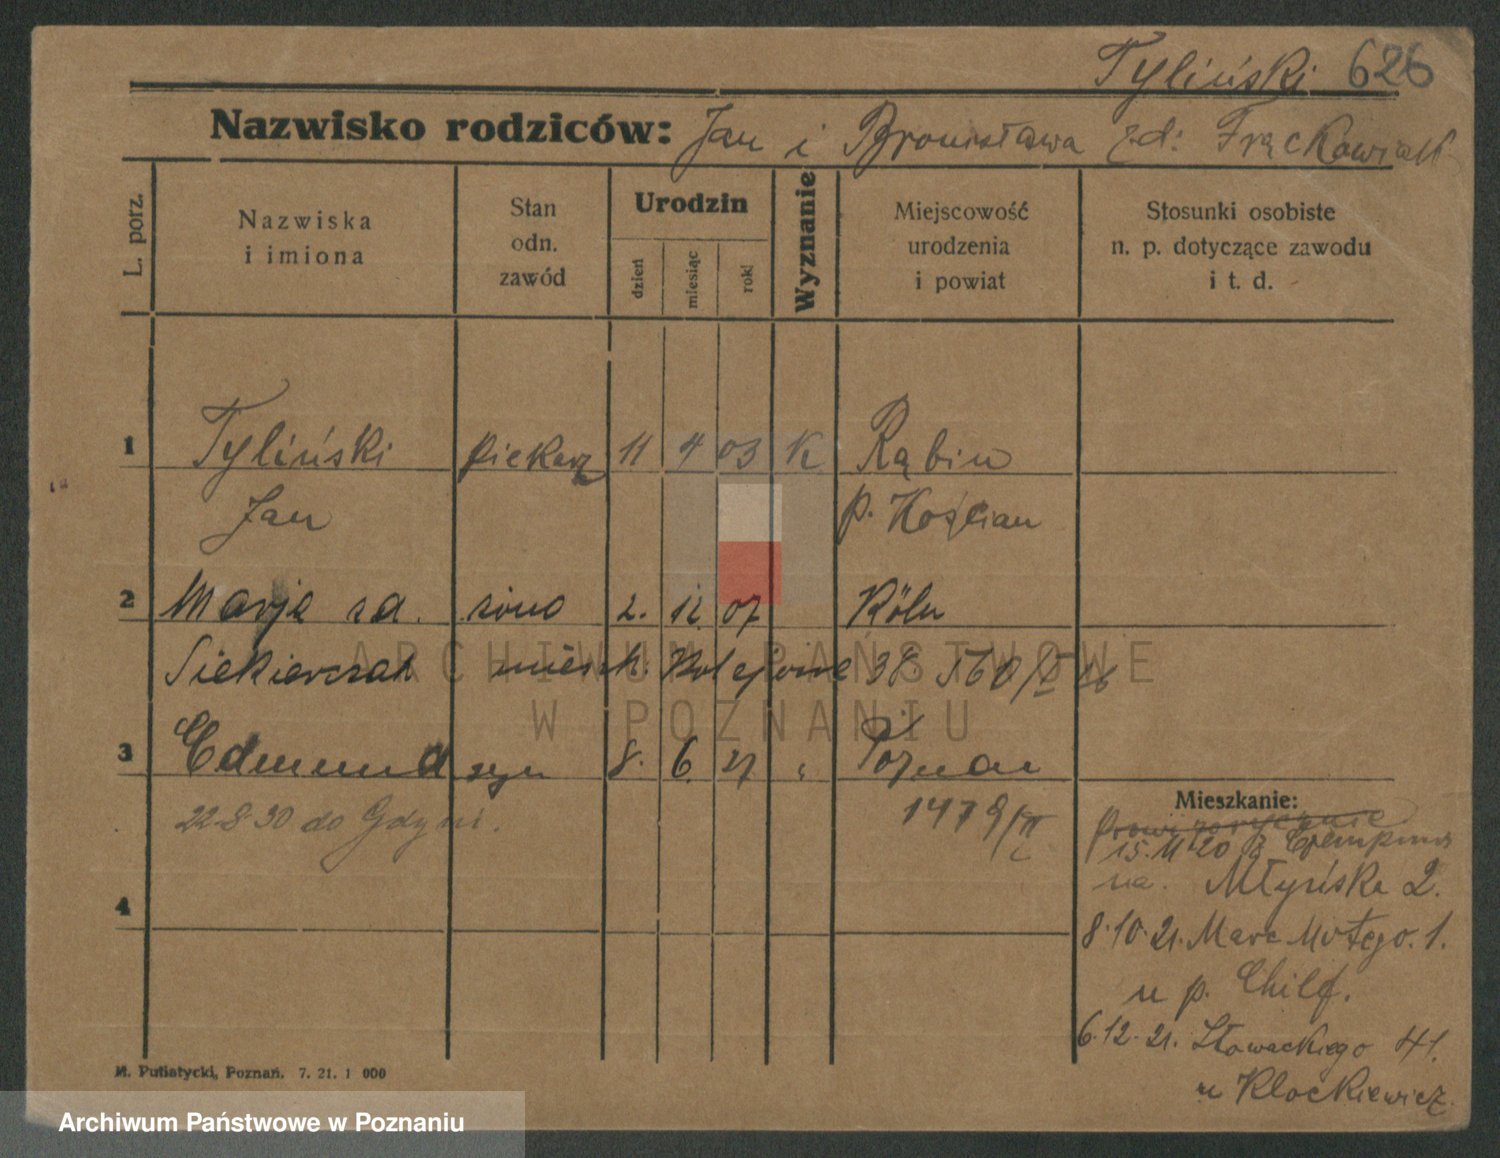 Tyliński 626
Nazwisko rodziców: Jan i Bronisława zd: Frąckowiak
L. porz.
Nazwiska
i imiona
Stan
odn.
zawód
Urodzin
dzień
miesiąc
rok
Wyznanie
Miejscowość
urodzenia
i powiat
Stosunki osobiste
n. p. dotyczące zawodu
i t. d.
1 Tyliński piekarz 11 4 03 K Rąbin
Jan p. Kościan
2 Marja zd. żona 2. 12 07 Köln
Siekierczak mieszk. Kolejowe 38
ARCHIWUM PAŃSTWOWE
W POZNANIU
3 Edmund syn 8. 6. 27 Poznań
22-8-30 do Gdyni.
Mieszkanie:
prowizorycznie
15.11 20 z Czempinia
na. Młyńska 2.
4
8.10.21. Marc 1.
u p.
6.12.21. Słowackiego 41.
u Klockiewicz.
M. Putiatycki, Poznań. 7. 21. 1 000
Archiwum Państwowe w Poznaniu